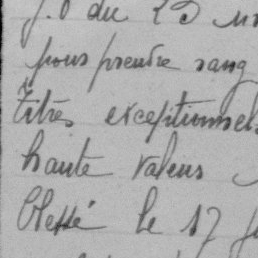 J.O du 25
pour prendre rang
Titres exceptionnels
haute valeur
blessé le 17